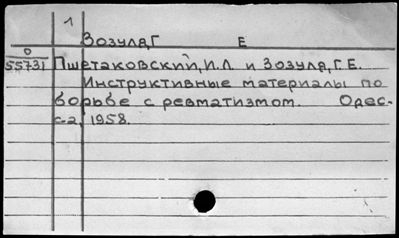 1
Зозуля, Г Е
О
55731 Пшетаковский, И.Л. и Зозуля, Г.Е.
Инструктивные материалы по
борьбе с ревматизмом. Одес-
са, 1958.